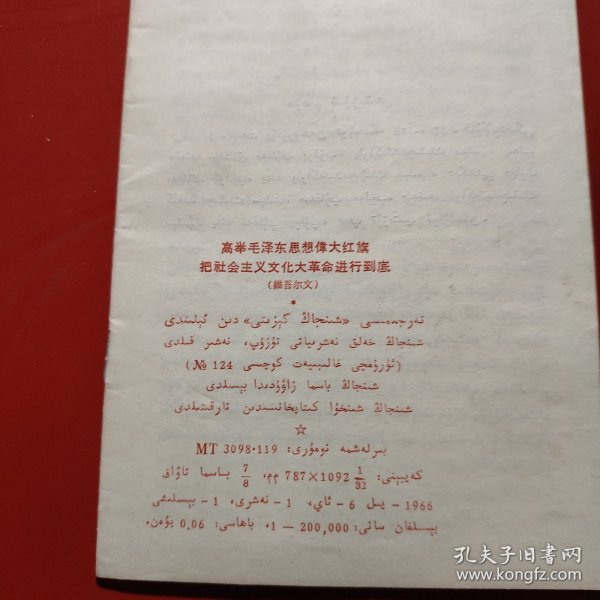 高举毛泽东思想偉大红旗
把社会主义文化大革命进行到底
(維吾尔文)
*
تەرجىمىسى «شىنجاڭ گېزىتى» دىن ئېلىندى
شىنجاڭ خەلق نەشرىياتى تۈزۈپ، نەشىر قىلدى
(ئۈرۈمچى غالىبىيەت كوچىسى № 124)
شىنجاڭ باسما زاۋۇدىدا بېسىلدى
شىنجاڭ شىنخۇا كىتابخانىسىدىن تارقىتىلدى
☆
بىرلەشمە نومۇرى: MT 3098·119
كەپىپنى: 787×1092 1/32 مم، 7/8 باسما تاۋاق
1966 - يىل 6 - ئاي، 1 - نەشرى، 1 - بېسىلىشى
بېسىلغان سانى: 200,000 — 1، باھاسى: 0.06 يۈەن.
孔夫子旧书网
www.kongfz.com